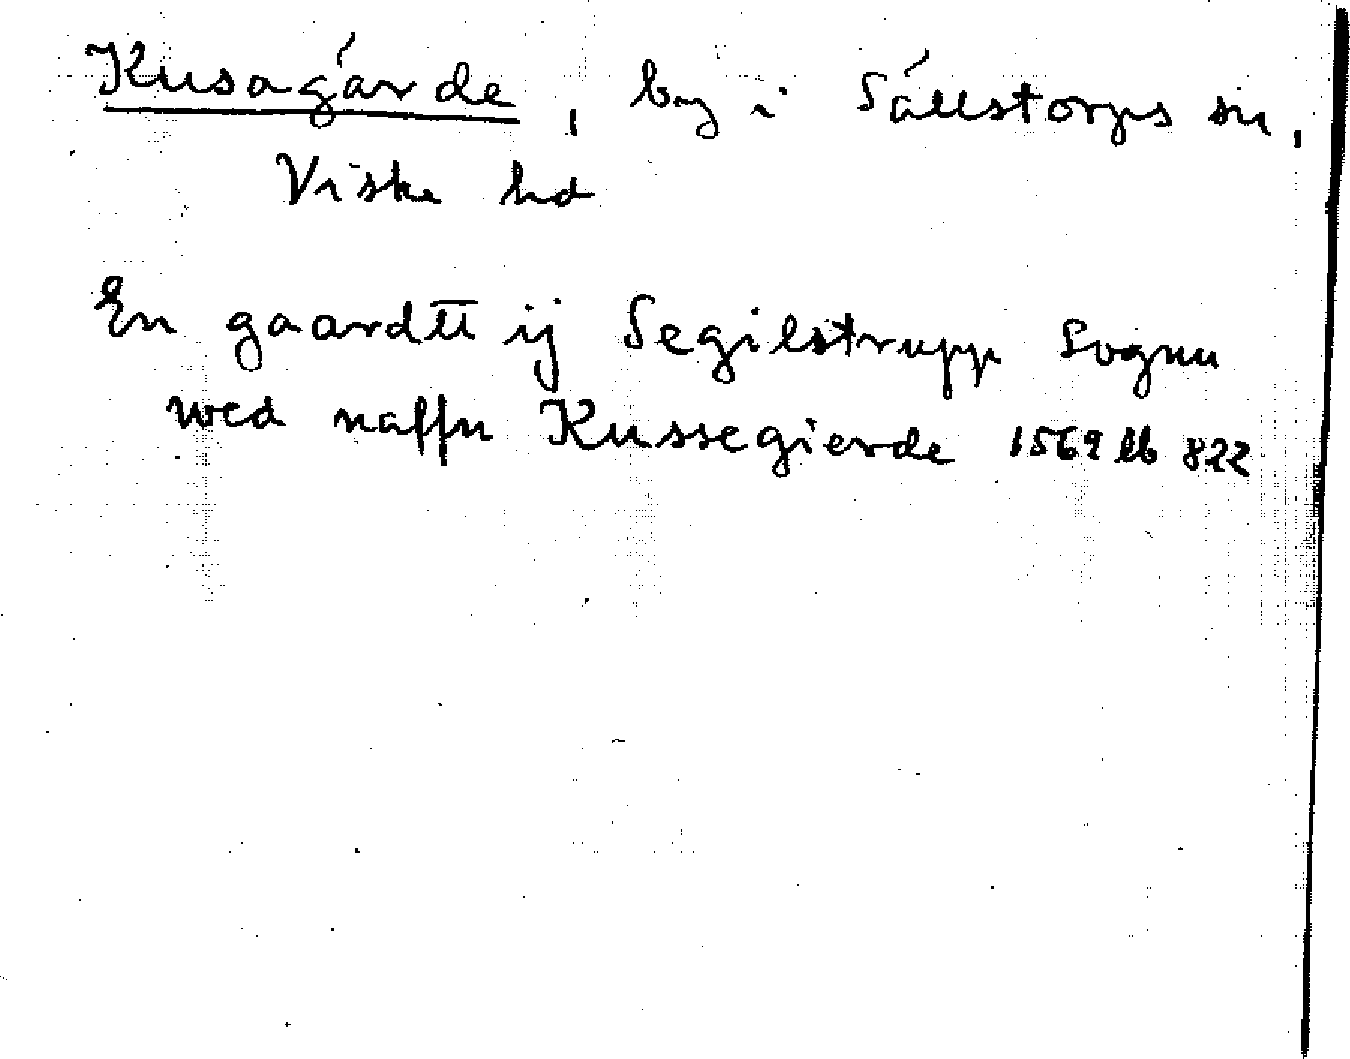 Kusagärde, by i Sällstorps sn,
Viske hd
En gaardtt ij Segilstrupp Sognn
wed naffn Kussegierde 1569 lb 822